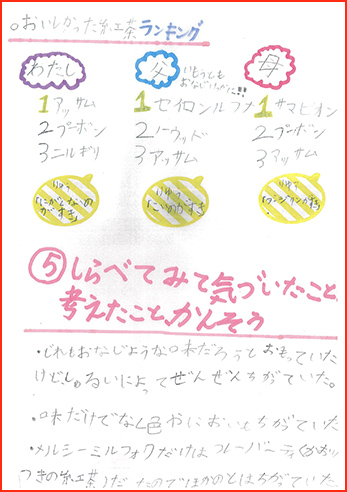 ○おいしかった紅茶ランキング
わたし
父
いもうとも
おなじ
!!
母
1アッサム
2
3ニルギリ
1セイロンルフナ
2
3アッサム
1サマビオン
2
3アッサム
りゆう
がすき
りゆう
りゆう
⑤しらべてみて気づいたこと
考えたこと、かんそう
・どれもおなじような味だろうとおもっていた
けどしゅるいによってぜんぜんちがっていた。
・味だけでなく色やにおいもちがっていた
・メルシーミルフォクだけはフレーバーティ(かおり
つきの紅茶)だったのでほかのとはちがっていた